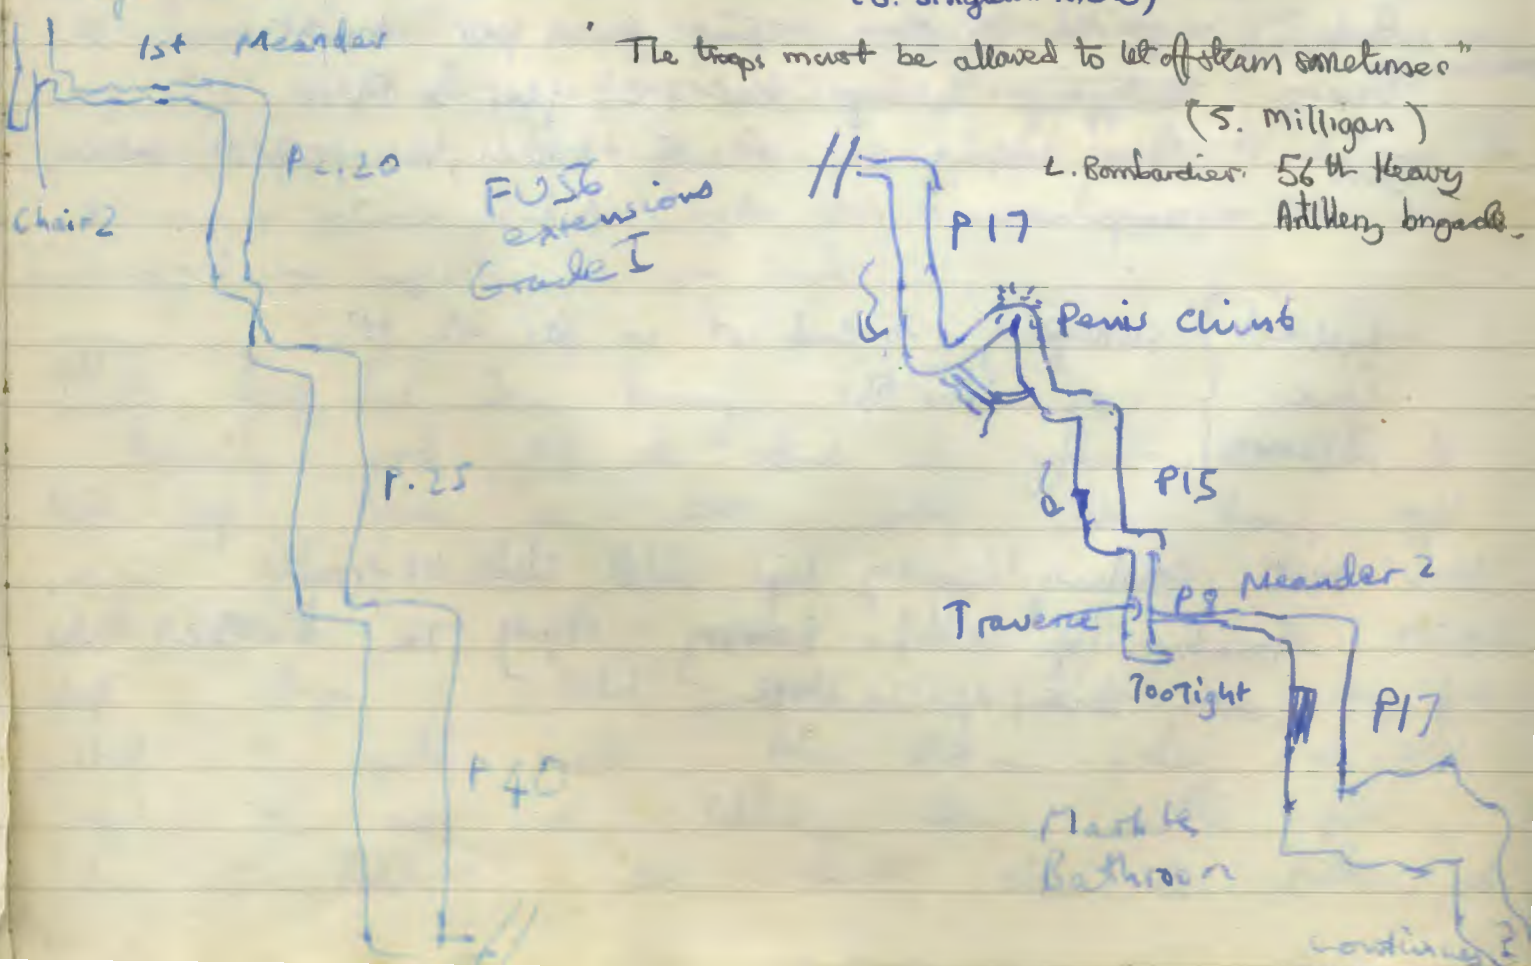 1st Meander
"The troops must be allowed to let off steam sometimes"
(S. Milligan)
L. Bombardier. 56th Heavy
Artillery brigade.
P c.20
Chair 2
FU56
extensions
Grade I
P17
Penis Climb
P.25
P15
Traverse
P8 Meander 2
Too Tight
P17
P40
Marble
Bathroom
Continues ?